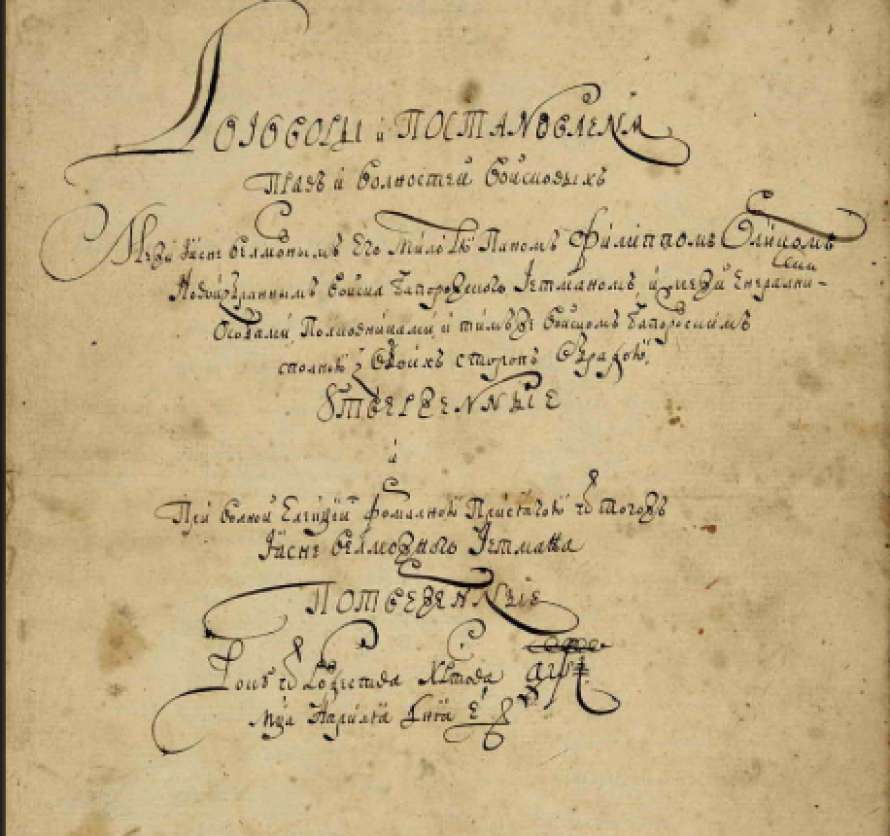 Договоры и Постановленѧ
Правъ и волностей войсковыхъ
Межи Ясне велможнымъ Его Милостю Паномъ Филиппомъ Орликомъ
Новоизбраннымъ войска Запорожского Гетманомъ, и межи Енералними
Особами Полковниками и тимъже войскомъ Запорожскимъ
сполною з обоихъ сторонъ обрадою
Утверженные
и
При волной Елекцѣи формалною присягою ѿ тогожъ
Ясне велможного Гетмана
Потверженные
Року ѿ Рождества Христова ҂аѱі
Мца Априлїа дня е҃